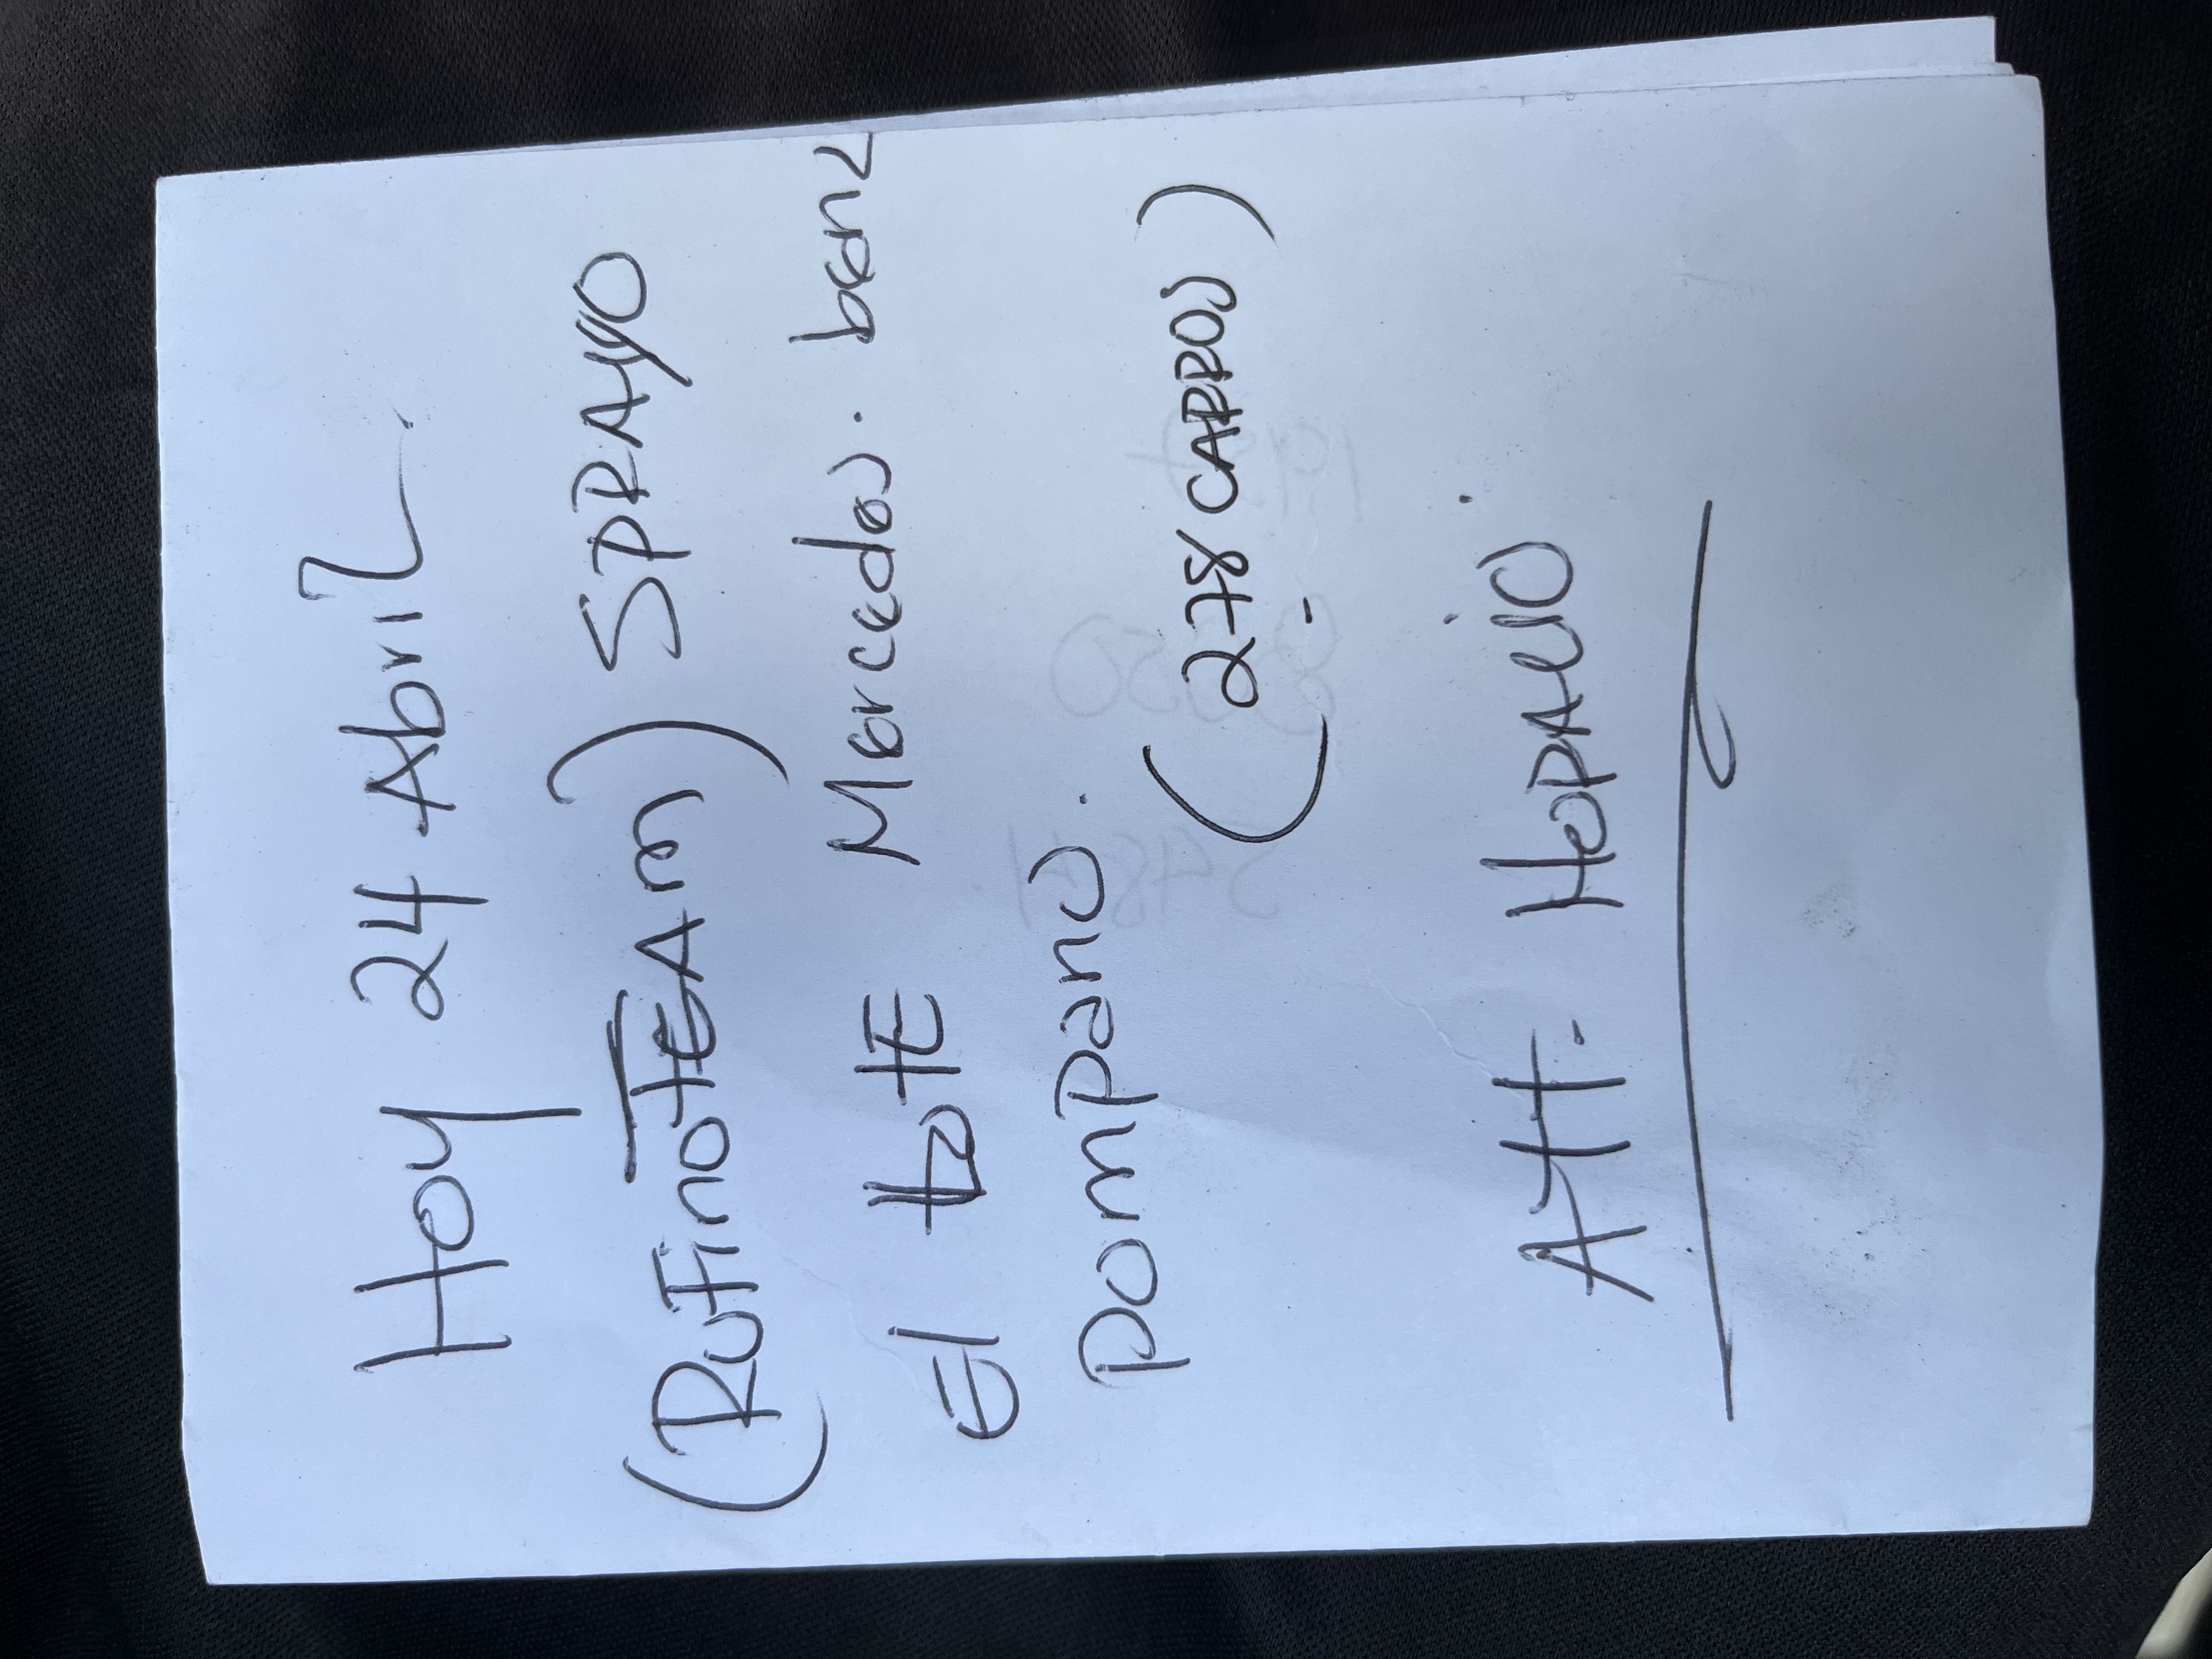 Hoy 24 Abril.
(RuFino TEAm) SPRAyO
El LoTE Mercedes. benz
pompano.
(278 CARROS)
Att. HORACIO.